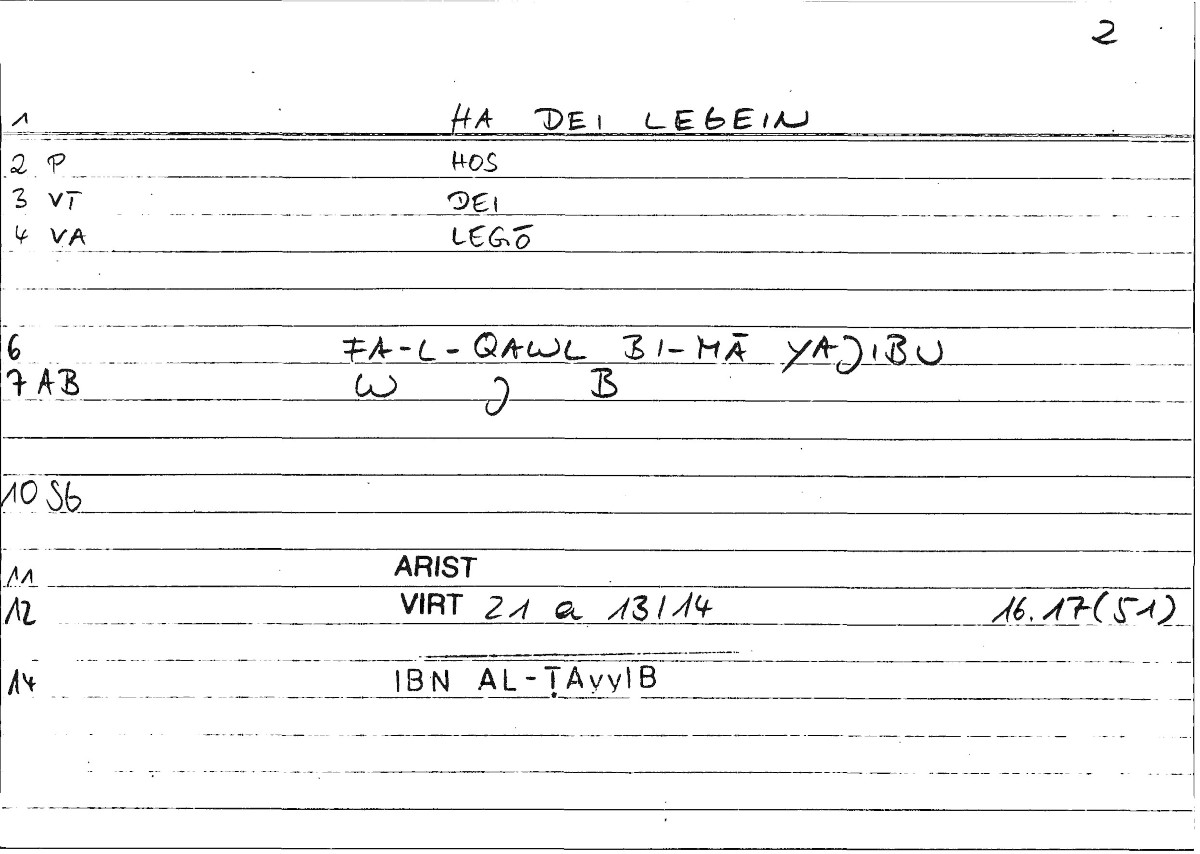 2
1 HA DEI LEGEIN
2 P HOS
3 VT DEI
4 VA LEGŌ
6 FA-L-QAWL BI-MĀ YAJIBU
7 AB W J B
10 Sb
11 ARIST
12 VIRT 21 a 13/14 16.17(51)
14 IBN AL-ṬAyyIB